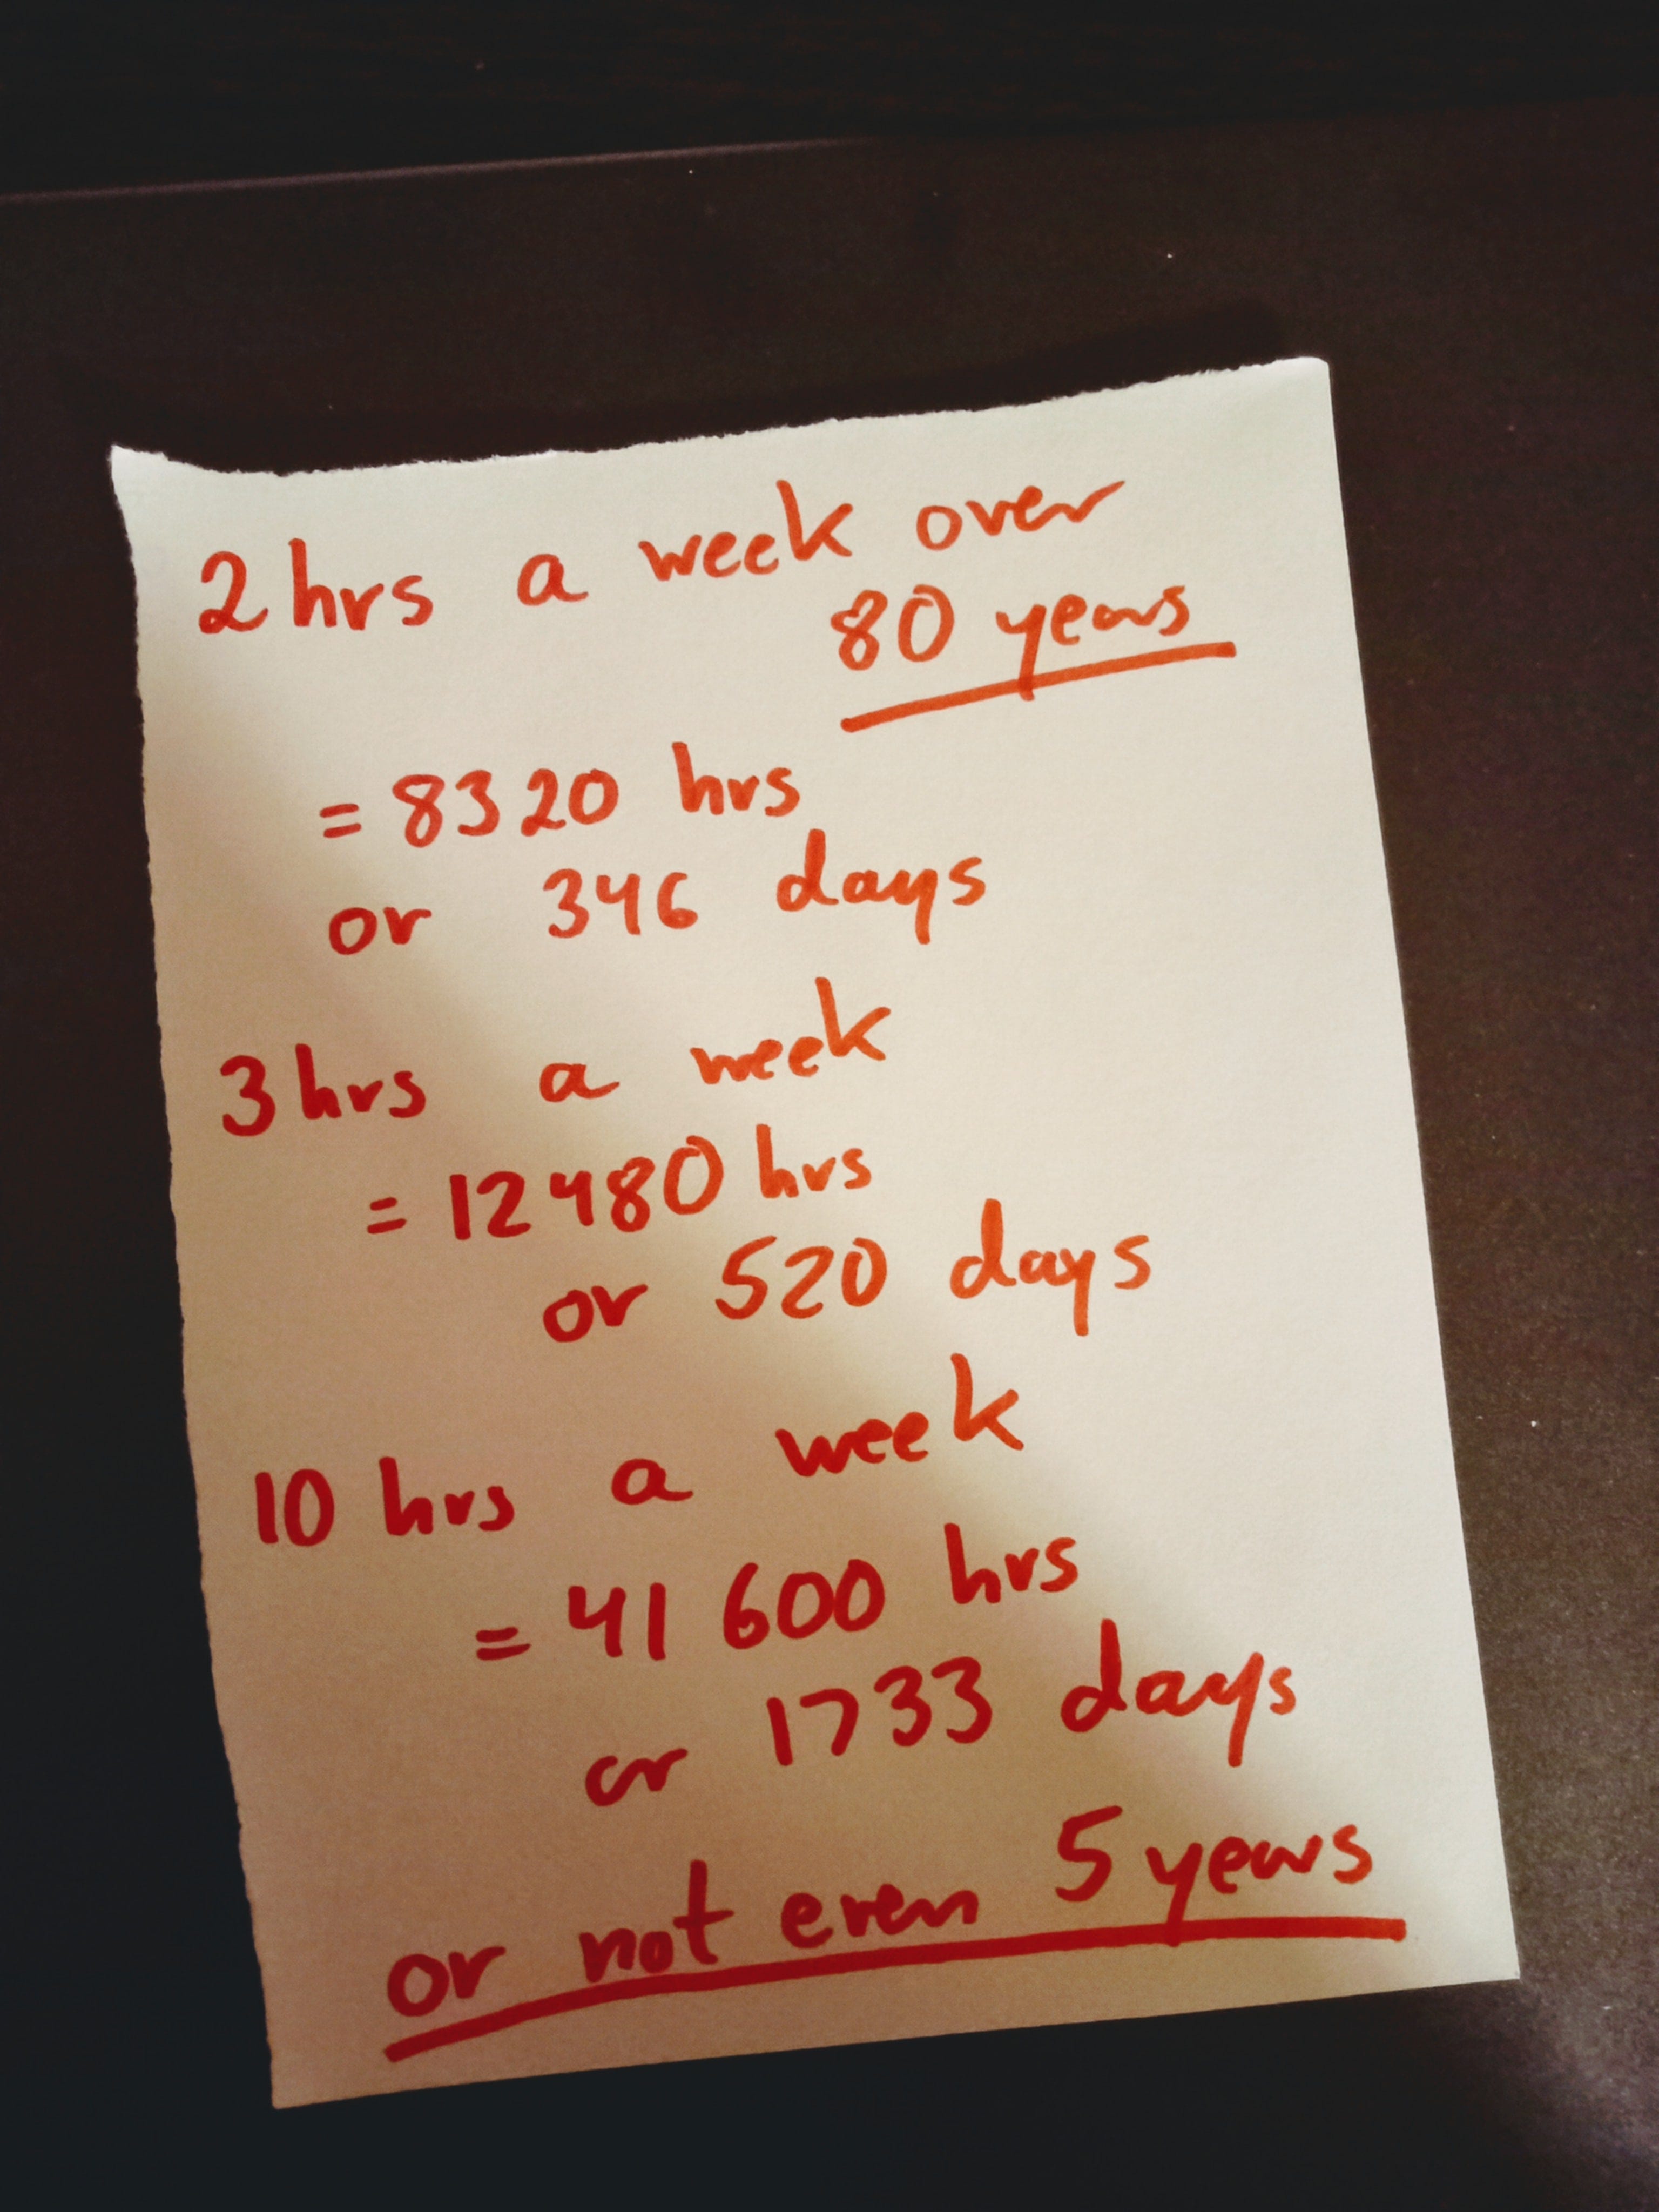 2 hrs a week over
80 years
= 8320 hrs
or 346 days
3 hrs a week
= 12480 hrs
or 520 days
10 hrs a week
= 41 600 hrs
or 1733 days
or not even 5 years